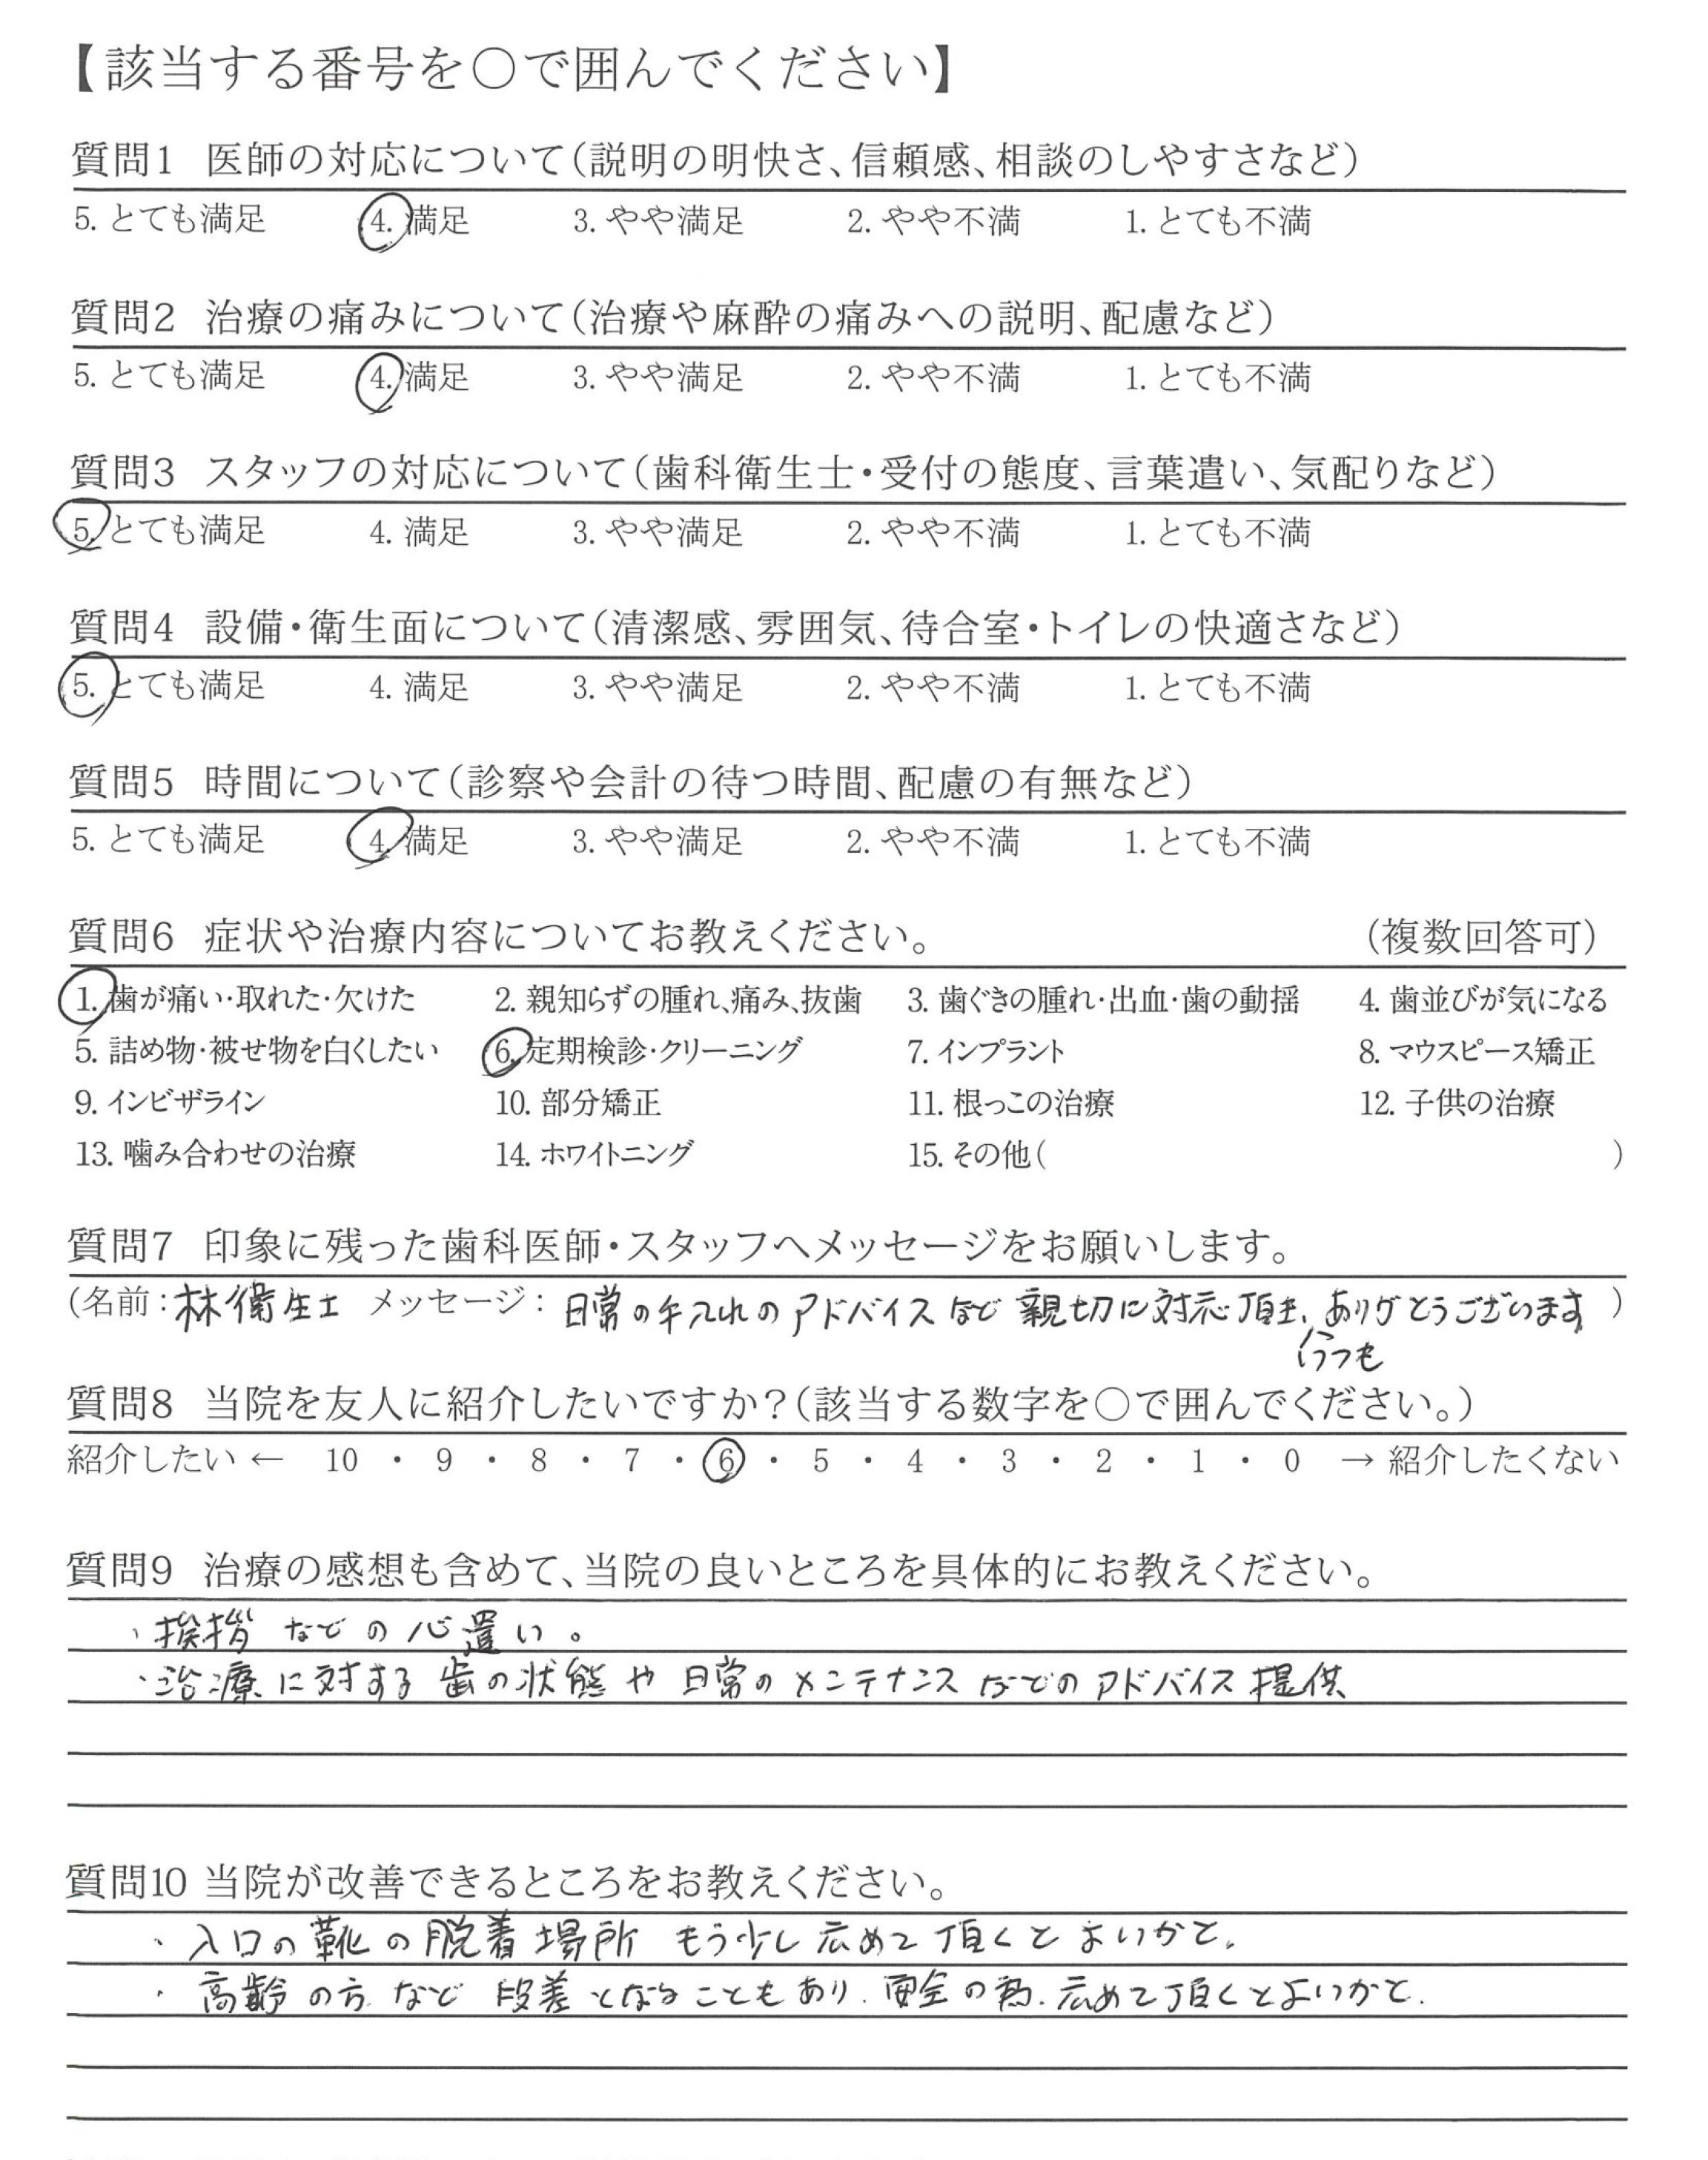 【該当する番号を〇で囲んでください】
質問1 医師の対応について（説明の明快さ、信頼感、相談のしやすさなど）
5. とても満足 4. 満足 3. やや満足 2. やや不満 1. とても不満
質問2 治療の痛みについて（治療や麻酔の痛みへの説明、配慮など）
5. とても満足 4. 満足 3. やや満足 2. やや不満 1. とても不満
質問3 スタッフの対応について（歯科衛生士・受付の態度、言葉遣い、気配りなど）
5. とても満足 4. 満足 3. やや満足 2. やや不満 1. とても不満
質問4 設備・衛生面について（清潔感、雰囲気、待合室・トイレの快適さなど）
5. とても満足 4. 満足 3. やや満足 2. やや不満 1. とても不満
質問5 時間について（診察や会計の待つ時間、配慮の有無など）
5. とても満足 4. 満足 3. やや満足 2. やや不満 1. とても不満
質問6 症状や治療内容についてお教えください。 （複数回答可）
1. 歯が痛い・取れた・欠けた 2. 親知らずの腫れ、痛み、抜歯 3. 歯ぐきの腫れ・出血・歯の動揺 4. 歯並びが気になる
5. 詰め物・被せ物を白くしたい 6. 定期検診・クリーニング 7. インプラント 8. マウスピース矯正
9. インビザライン 10. 部分矯正 11. 根っこの治療 12. 子供の治療
13. 噛み合わせの治療 14. ホワイトニング 15. その他（ ）
質問7 印象に残った歯科医師・スタッフへメッセージをお願いします。
（名前：林衛生士 メッセージ：日常の手入れのアドバイスなど親切に対応頂き、ありがとうございます ）
いつも
質問8 当院を友人に紹介したいですか？（該当する数字を〇で囲んでください。）
紹介したい ← 10 ・ 9 ・ 8 ・ 7 ・ 6 ・ 5 ・ 4 ・ 3 ・ 2 ・ 1 ・ 0 → 紹介したくない
質問9 治療の感想も含めて、当院の良いところを具体的にお教えください。
・挨拶などの心遣い。
・治療に対する歯の状態や日常のメンテナンスなどのアドバイス提供
質問10 当院が改善できるところをお教えください。
・入口の靴の脱着場所 もう少し広めて頂くとよいかと。
・高齢の方など段差となることもあり、安全の為、広めて頂くとよいかと。